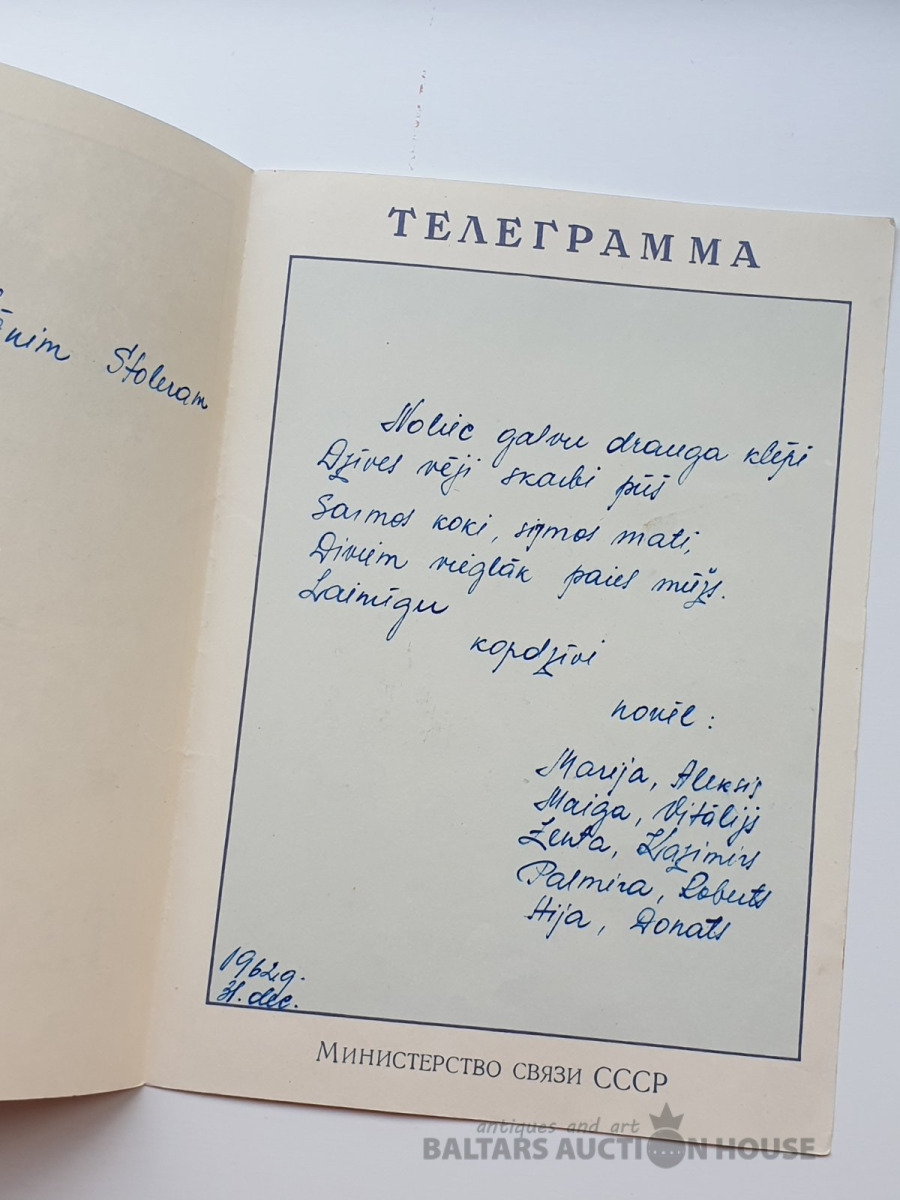 Stoleram
ТЕЛЕГРАММА
Noliec galvu drauga klēpi
Dzīves vēji skarbi pūš
Sarmos koki, sirmos mati,
Diviem vieglāk paies mūžs.
Laimīgu
kopdzīvi
novēl:
Marija, Aleksis
Maiga, Vitālijs
Zenta, Kazimirs
Palmira, Roberts
Ilija, Donats
1962g.
31. dec.
Министерство связи СССР
antiques and art
BALTARS AUCTION HOUSE